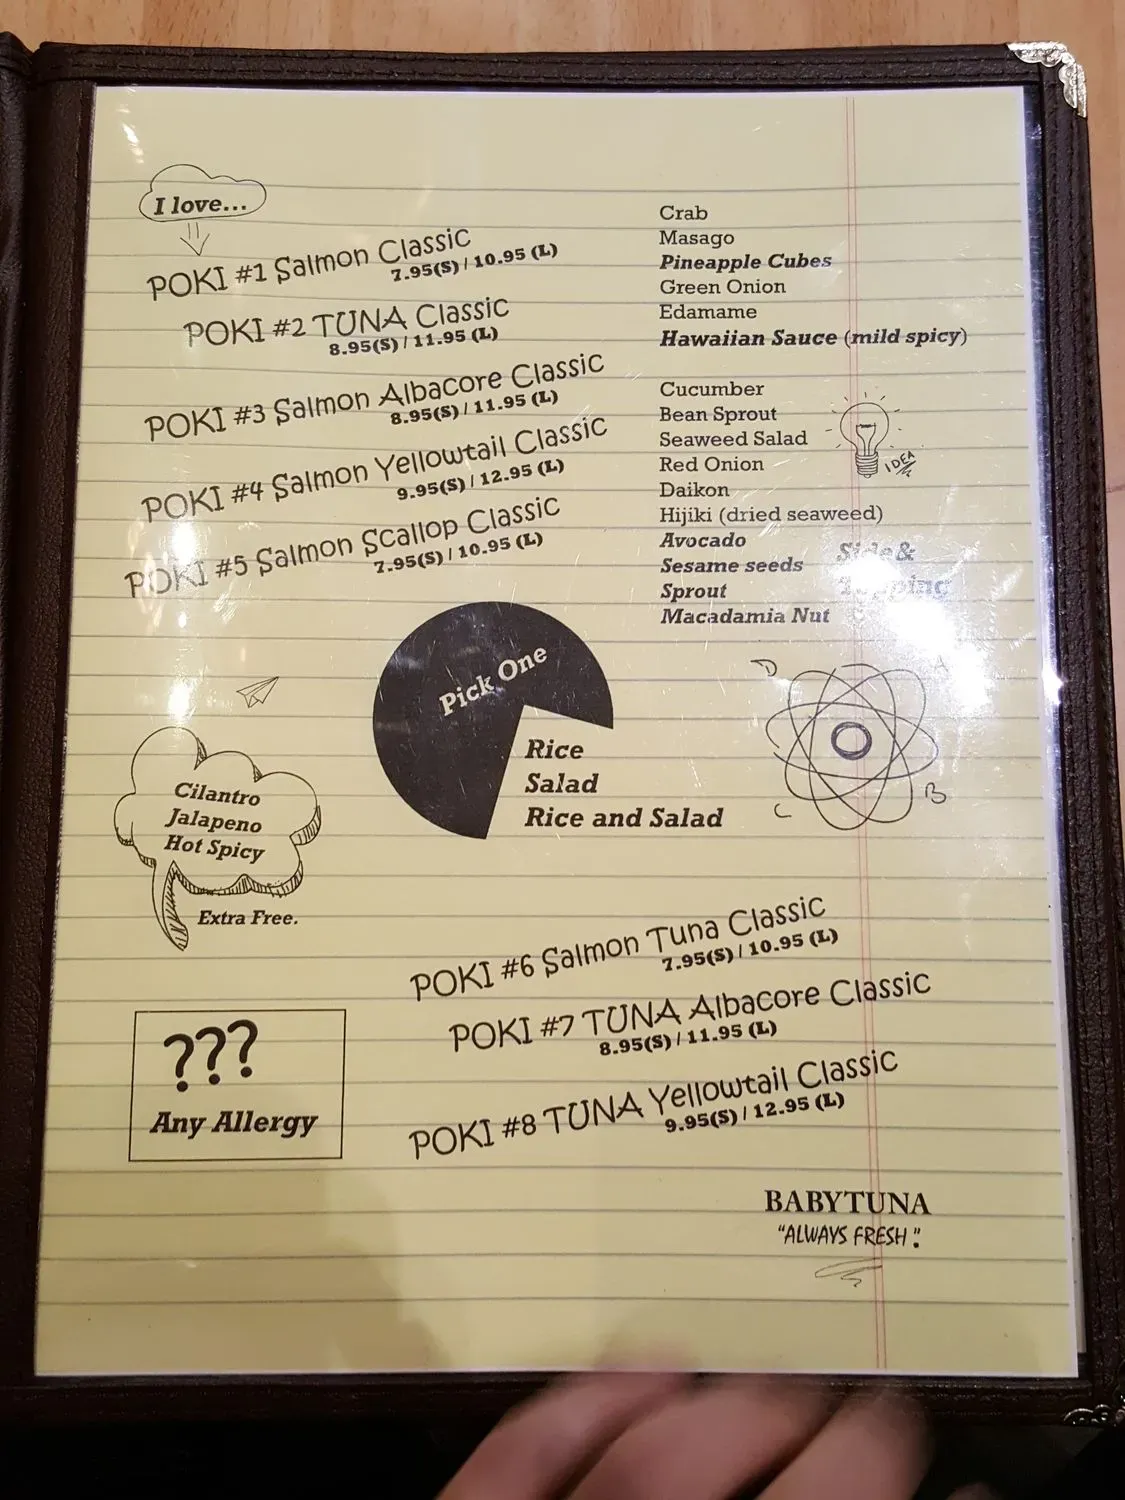 I love...
POKI #1 Salmon Classic
7.95(S) / 10.95 (L)
POKI #2 TUNA Classic
8.95(S) / 11.95 (L)
POKI #3 Salmon Albacore Classic
8.95(S) / 11.95 (L)
POKI #4 Salmon Yellowtail Classic
9.95(S) / 12.95 (L)
POKI #5 Salmon Scallop Classic
7.95(S) / 10.95 (L)
Crab
Masago
Pineapple Cubes
Green Onion
Edamame
Hawaiian Sauce (mild spicy)
Cucumber
Bean Sprout
Seaweed Salad
Red Onion
Daikon
Hijiki (dried seaweed)
Avocado
Sesame seeds
Sprout
Macadamia Nut
IDEA
Side &
Topping
Pick One
Rice
Salad
Rice and Salad
D
A
C
B
Cilantro
Jalapeno
Hot Spicy
Extra Free.
POKI #6 Salmon Tuna Classic
7.95(S) / 10.95 (L)
POKI #7 TUNA Albacore Classic
8.95(S) / 11.95 (L)
POKI #8 TUNA Yellowtail Classic
9.95(S) / 12.95 (L)
???
Any Allergy
BABYTUNA
"ALWAYS FRESH".